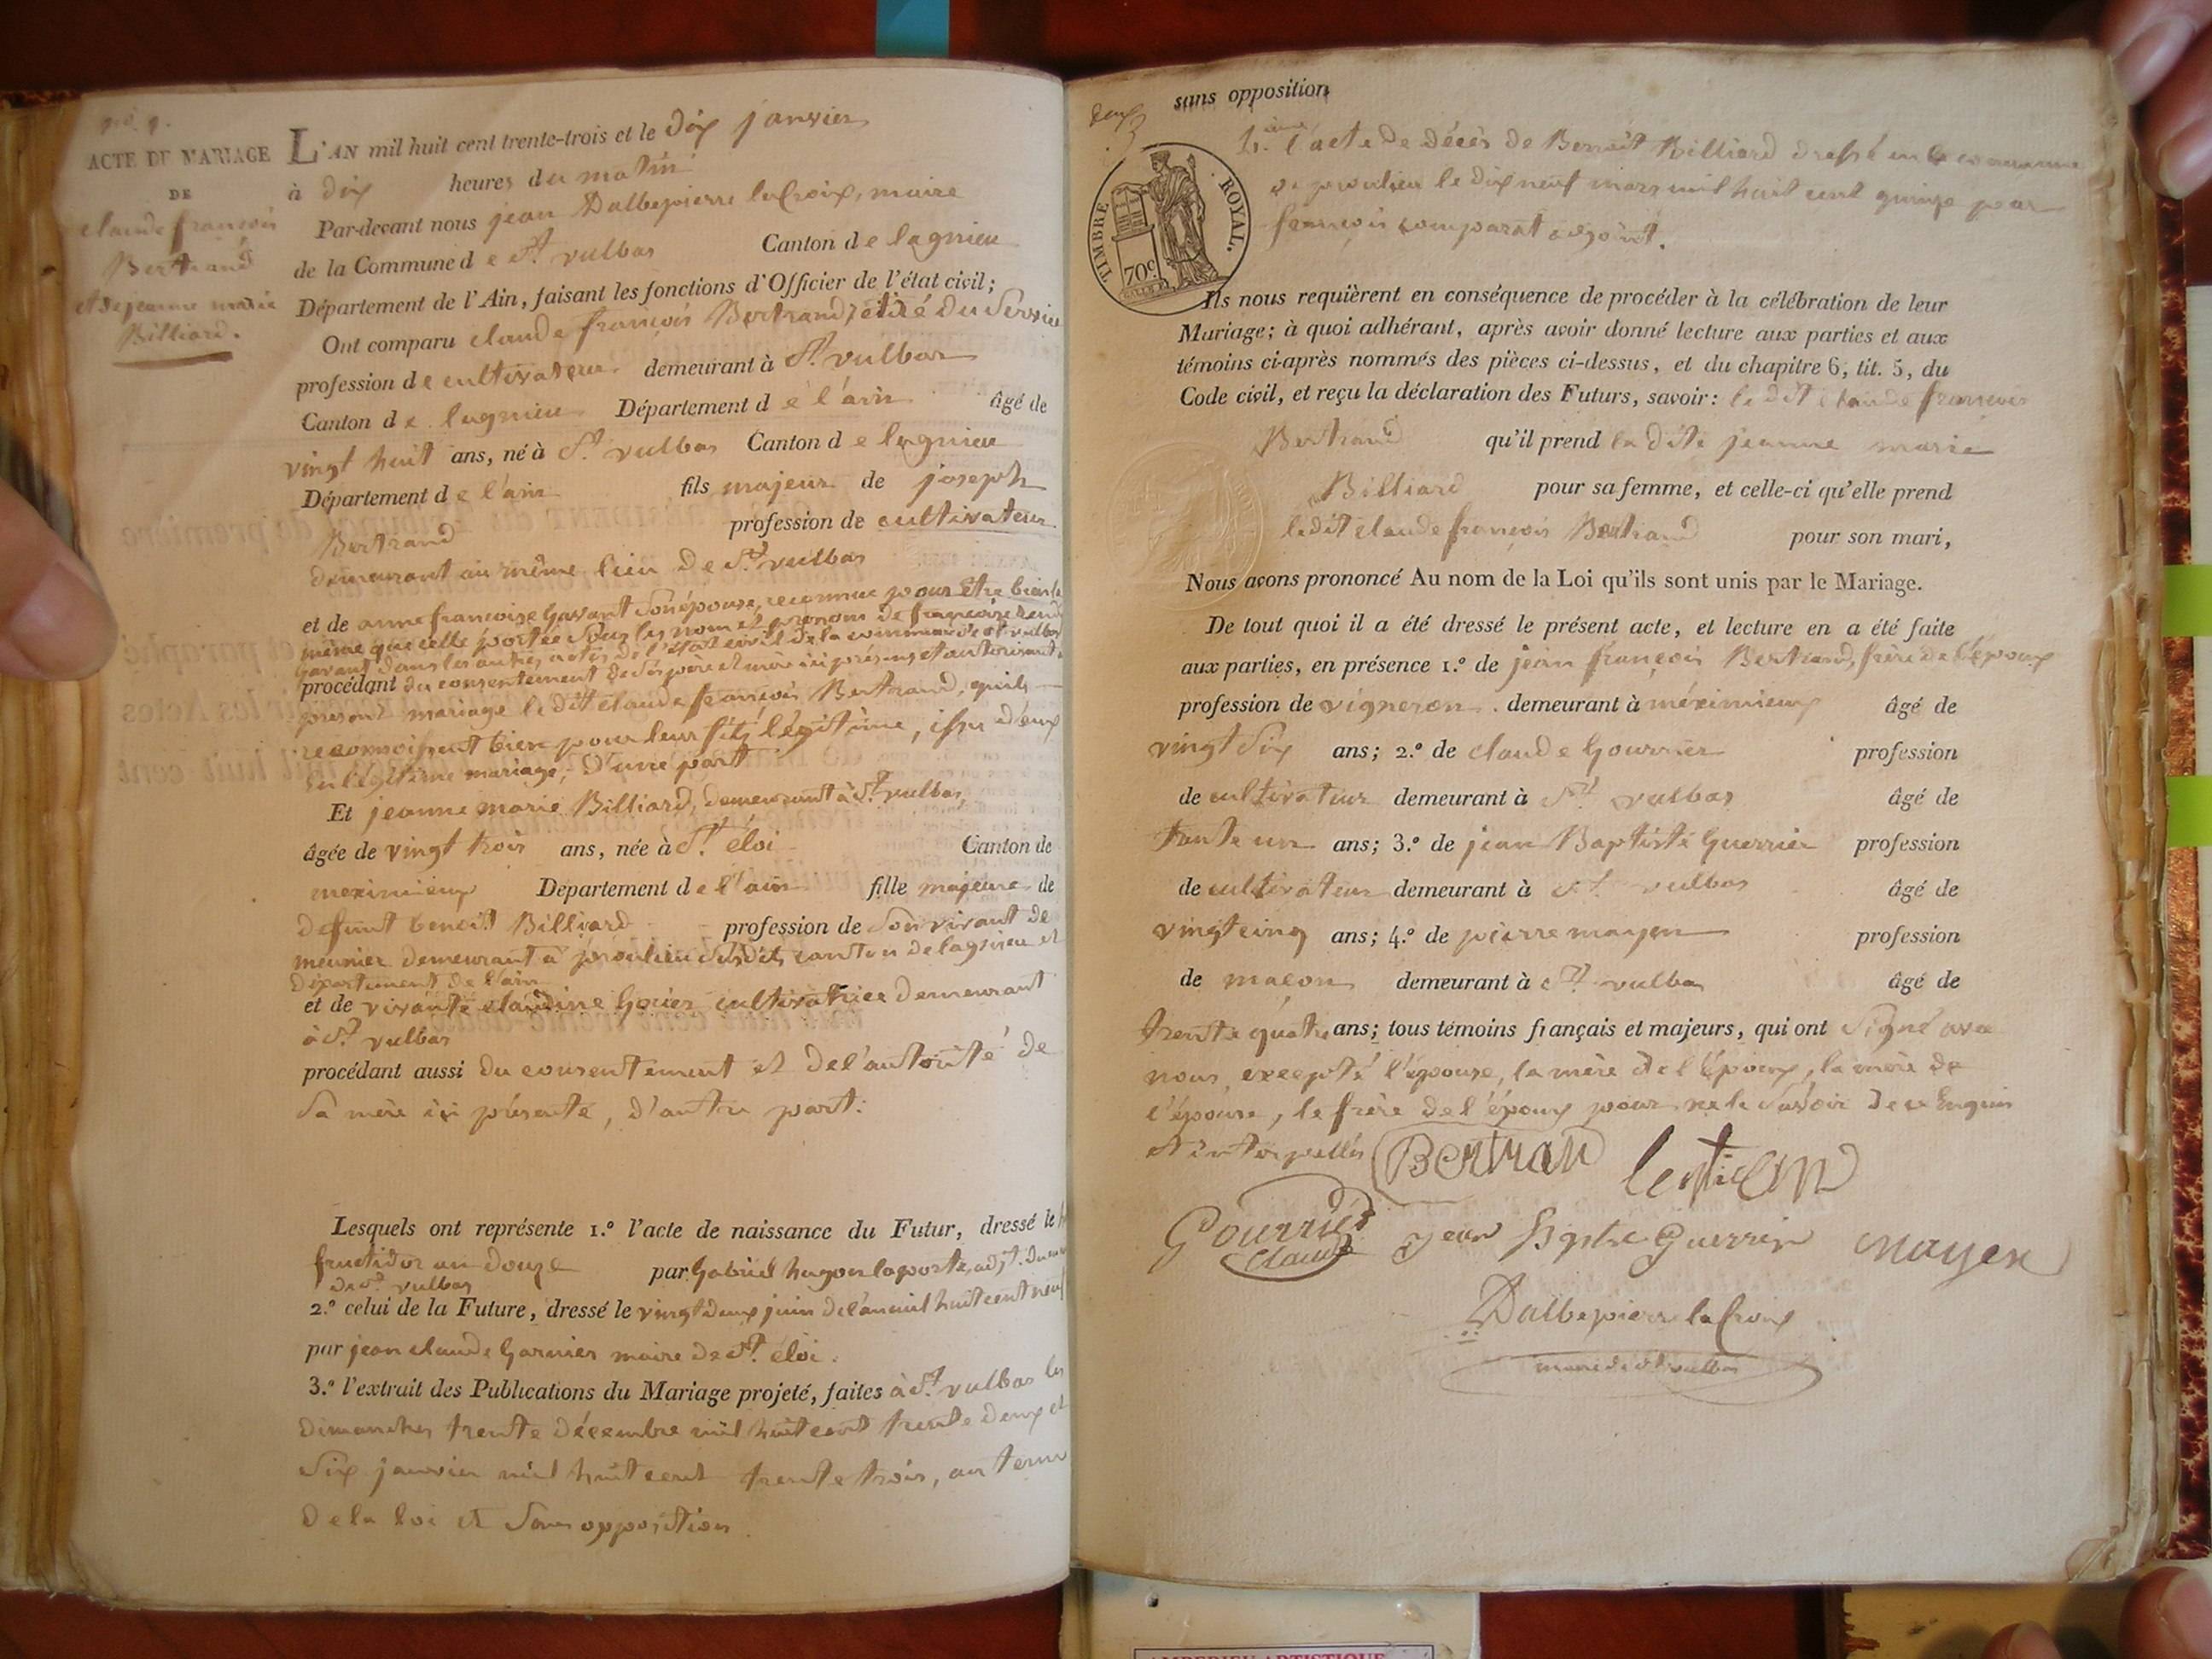 ACTE DE MARIAGE
DE
claude françois
Bertrand
et de jeanne marie
Billiard.
L'AN mil huit cent trente-trois et le dix janvier
à dix heures du matin
Par-devant nous jean Dalbepierre laCroix, maire
de la Commune de St. vulbas Canton de lagnieu
Département de l'Ain, faisant les fonctions d'Officier de l'état civil;
Ont comparu claude françois Bertrand, du Service
profession de cultivateur demeurant à St. vulbas
Canton de lagnieu Département de l'ain âgé de
vingt huit ans, né à St. vulbas Canton de lagnieu
Département de l'ain fils majeur de joseph
Bertrand profession de cultivateur
demeurant au même lieu de St. vulbas
et de anne françoise Gavant son épouse, reconnue pour être bien la
même que celle portée sous les nom et prenoms de françoise
gavant dans les autres actes de l'état civil de la commune de St vulbas
procédant du consentement de ses père et mère ici présens et autorisant
présent mariage le dit claude françois Bertrand, quils
reconnoissent bien pour leur fils légitime, issu d'eux
en légitime mariage, D'une part
Et jeanne marie Billiard, demeurant à St. vulbas
âgée de vingt trois ans, née à St. éloi Canton de
meximieux Département de l'ain fille majeure de
defunt benoit Billiard profession de son vivant de
meunier demeurant à proulieu susdit canton de lagnieu et
département de l'ain
et de vivante claudine Gorier cultivatrice demeurant
à St. vulbas
procédant aussi du consentement et de l'autorité de
Sa mère ici présente, d'autre part.
Lesquels ont représente 1.º l'acte de naissance du Futur, dressé le
fructidor an douze par Gabriel hugon laporte, adjt. du
de St. vulbas
2.º celui de la Future, dressé le vingt deux juin de l'an mil huit cent neuf
par jean claude Garnier maire de St. éloi.
3.º l'extrait des Publications du Mariage projeté, faites à St. vulbas les
dimanches trente décembre mil huit cent trente deux et
Six janvier mil huit cent trente trois, au terme
de la loi et Sans opposition
sans opposition
deux
TIMBRE ROYAL.
70c
4. l'acte de décès de Benoit Billiard dressé en la commune
de proulieu le dix neuf mars mil huit cent quinze par
françois comparat adjoint.
Ils nous requièrent en conséquence de procéder à la célébration de leur
Mariage; à quoi adhérant, après avoir donné lecture aux parties et aux
témoins ci-après nommés des pièces ci-dessus, et du chapitre 6, tit. 5, du
Code civil, et reçu la déclaration des Futurs, savoir: le dit claude françois
Bertrand qu'il prend la dite jeanne marie
Billiard pour sa femme, et celle-ci qu'elle prend
le dit claude françois Bertrand pour son mari,
Nous avons prononcé Au nom de la Loi qu'ils sont unis par le Mariage.
De tout quoi il a été dressé le présent acte, et lecture en a été faite
aux parties, en présence 1.º de jean françois Bertrand, frère de l'époux
profession de vigneron demeurant à méximieux âgé de
vingt Six ans; 2.º de claude Gourrier profession
de cultivateur demeurant à St. vulbas âgé de
trente un ans; 3.º de jean Baptiste Guerrier profession
de cultivateur demeurant à St. vulbas âgé de
vingt cinq ans; 4.º de pierre mayen profession
de maçon demeurant à St. vulbas âgé de
trente quatre ans; tous témoins français et majeurs, qui ont Signé avec
nous, excepté l'épouse, la mère de l'époux, la mère de
l'épouse, le frère de l'époux pour ne le savoir de ce Enquis
et interpellés
Bertran
Gourrier
Claude
Jean Bptste Guerrier
mayen
Dalbepierre laCroix
maire de St vulbas